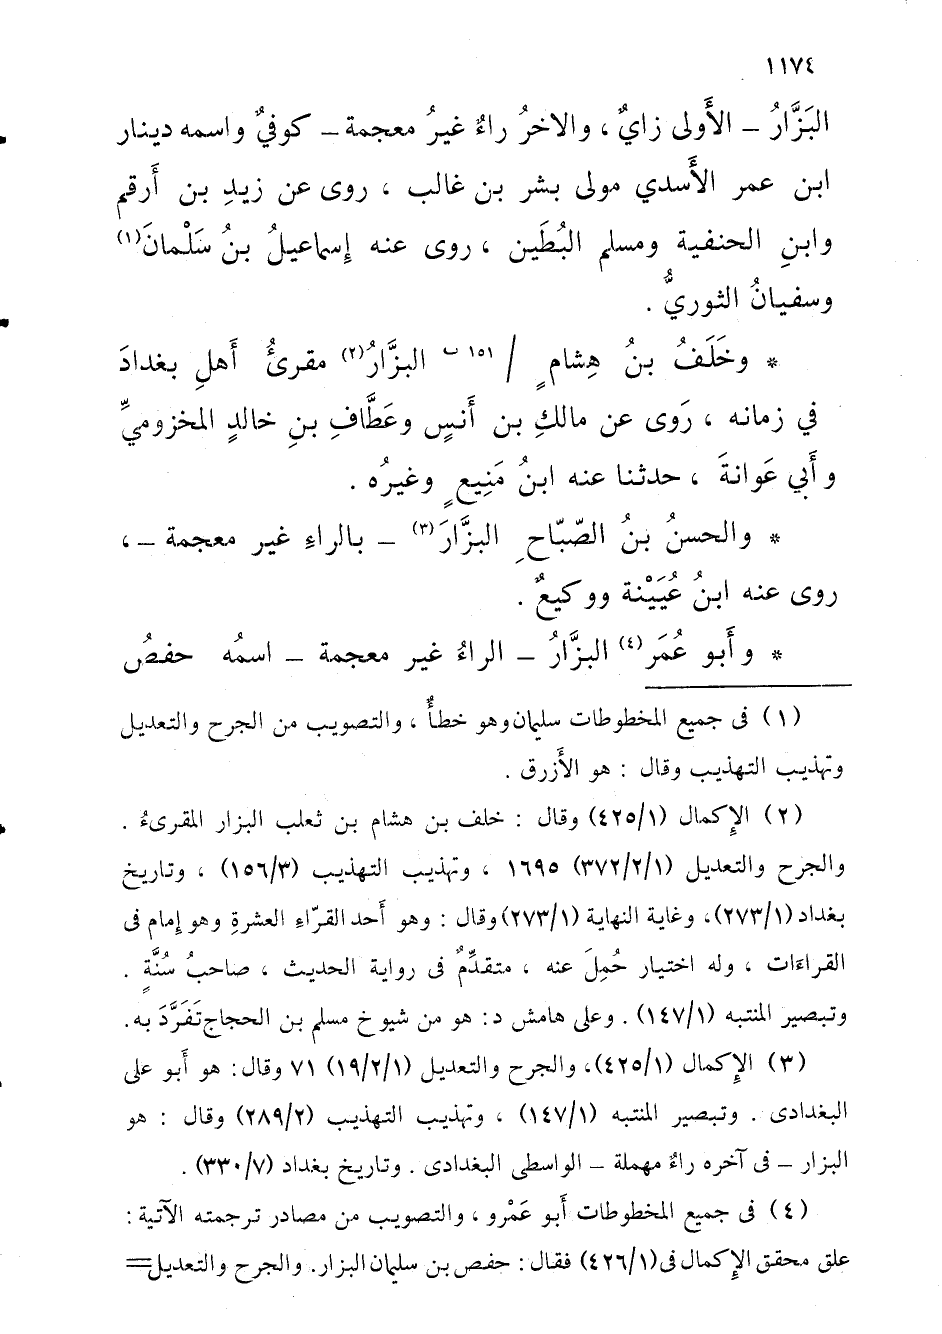 ١١٧٤
البَزَّارُ – الأَولى زايٌ ، والاخرُ راءٌ غيرُ معجمة – كوفيٌ واسمه دينار
ابن عمر الأَسدي مولى بشر بن غالب ، روى عن زيدِ بن أَرقم
وابنِ الحنفية ومسلم البُطَين ، روى عنه إسماعيلُ بنُ سَلْمانَ(١)
وسفيانُ الثوريُّ .
* وخَلَفُ بنُ هِشامٍ / ١٥١ ب البزَّارُ(٢) مقرئُ أَهلِ بغدادَ
في زمانه ، رَوى عن مالكِ بن أَنسٍ وعَطَّافِ بنِ خالدٍ المخزوميِّ
وأَبي عَوانةَ ، حدثنا عنه ابنُ مَنِيعٍ وغيرُه .
* والحسنُ بنُ الصّبّاحِ البزَّارَ(٣) – بالراءِ غير معجمة – ،
روى عنه ابنُ عُيَيْنة ووكيعٌ .
* وأَبو عُمَر(٤) البزَّارُ – الراءُ غير معجمة – اسمُه حفصُ
(١) فى جميع المخطوطات سليمان وهو خطأٌ ، والتصويب من الجرح والتعديل
وتهذيب التهذيب وقال : هو الأَزرق .
(٢) الإِكمال (٤٢٥/١) وقال : خلف بن هشام بن ثعلب البزار المقرىءُ .
والجرح والتعديل (٣٧٢/٢/١) ١٦٩٥ ، وتهذيب التهذيب (١٥٦/٣) ، وتاريخ
بغداد (٢٧٣/١)، وغاية النهاية (٢٧٣/١) وقال : وهو أَحد القرّاءِ العشرةِ وهو إمام فى
القراءَات ، وله اختيار حُمِلَ عنه ، متقدِّمٌ فى رواية الحديث ، صاحبُ سُنَّةٍ .
وتبصير المنتبه (١٤٧/١) . وعلى هامش د: هو من شيوخ مسلم بن الحجاج تَفَرَّدَ به.
(٣) الإِكمال (٤٢٥/١)، والجرح والتعديل (١٩/٢/١) ٧١ وقال: هو أَبو على
البغدادى . وتبصير المنتبه (١٤٧/١) ، وتهذيب التهذيب (٢٨٩/٢) وقال : هو
البزار – فى آخره راءٌ مهملة – الواسطى البغدادى . وتاريخ بغداد (٣٣٠/٧) .
(٤) فى جميع المخطوطات أَبو عَمْرو ، والتصويب من مصادر ترجمته الآتية :
علق محقق الإِكمال فى (٤٢٦/١) فقال : حفص بن سليمان البزار. والجرح والتعديل=